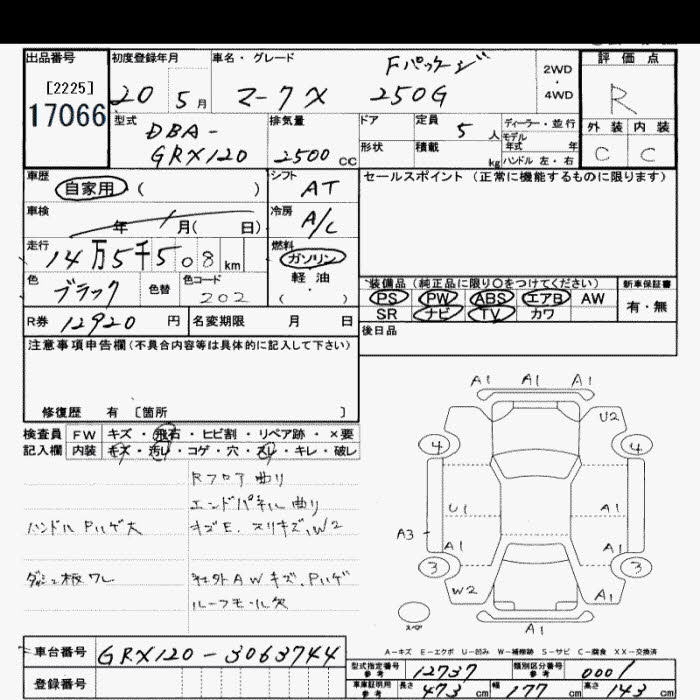 出品番号
[2225]
17066
初度登録年月
20 5月
車名・グレード
Fパッケージ
マークX 250G
2WD
・
4WD
評価点
R
外装 内装
C C
型式
DBA-
GRX120
排気量
2500 CC
ドア
形状
定員 5 人
積載 kg
ディーラー・並行
モデル
年式 年
ハンドル 左・右
車歴
自家用 ( )
シフト
AT
セールスポイント (正常に機能するものに限ります)
車検
年 月( 日)
冷房
A/C
走行
14万5千508 km
燃料
ガソリン
軽油
・
( )
色
ブラック
色替
色コード
202
装備品 (純正品に限り○をつけてください)
PS PW ABS エアB AW
SR ナビ TV カワ
新車保証書
有・無
R券 12920 円
名変期限 月 日
後日品
注意事項申告欄(不具合内容等は具体的に記入して下さい)
修復歴 有 [箇所 ]
検査員
記入欄
FW キズ・飛石・ヒビ割・リペア跡・×要
内装 キズ・汚レ・コゲ・穴・スレ・キレ・破レ
Rフロア曲り
エンドパネル曲り
ハンドルPハゲ大
キズE、スリキズ、W2
ダッシュ板ワレ
社外AWキズ、Pハゲ
ルーフモール欠
A1 A1 A1
U2
4 4
U1 A1
A3
A1 A1
3 3
W2 A1
スペア
A1
A-キズ E-エクボ U-凹み W-補修跡 S-サビ C-腐食 XX-交換済
車台番号 GRX120-3063744
登録番号
型式指定番号
参考
12737
類別区分番号
参考
0001
車庫証明用
参考
長さ 473 cm 幅 177 cm 高さ 143 cm